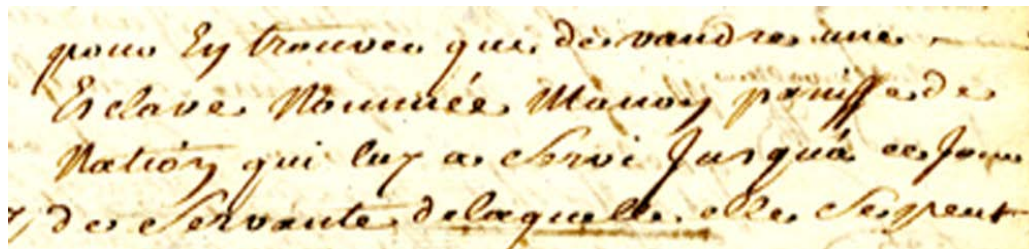 pour En trouver que de vandre une
Esclave Nommée Manon panisse de
Nation qui luy a Servi Jusqua ce Jour
de Servante delaquelle elle Se peut